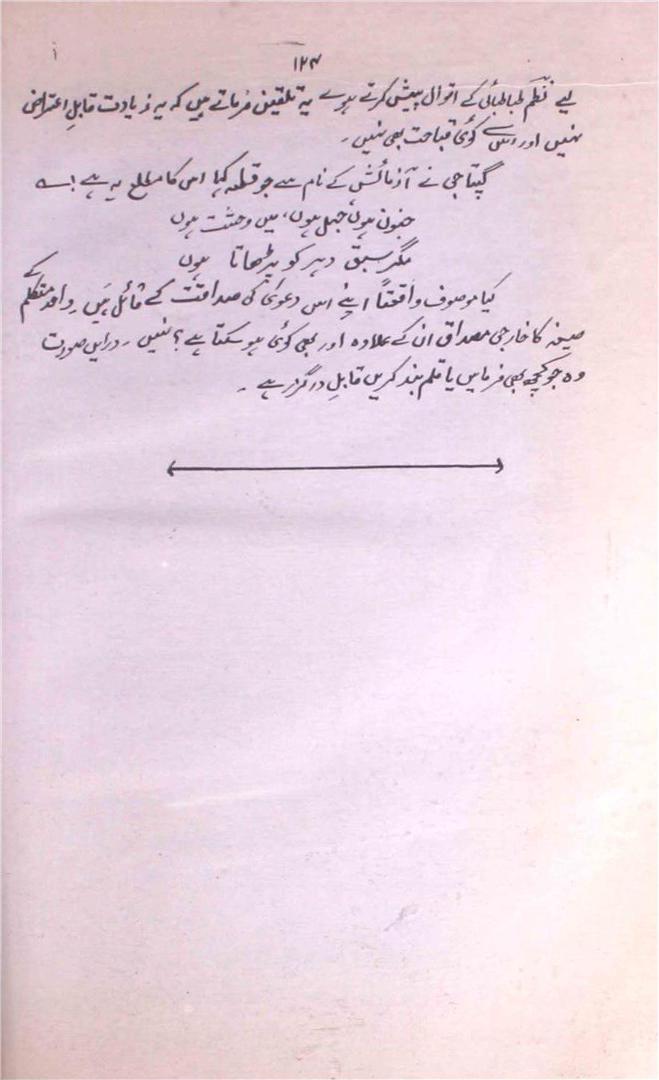 ۱۲۴
لیے نظم طباطبائی کے اقوال پیش کرتے ہوے یہ تلقین فرماتے ہیں کہ یہ زیادت قابلِ اعتراض
نہیں اور اس سے کوئی قباحت بھی نہیں۔
گپتا جی نے آزمائش کے نام سے جو قطعہ کہا اس کا مطلع یہ ہے؛
جنون ہوں، جہل ہوں، میں وحشت ہوں
مگر سبق دہر کو پڑھاتا ہوں
کیا موصوف واقعتاً اپنے اس دعویٰ کی صداقت کے قائل ہیں۔ واحد متکلم کے
صیغہ کا خارجی مصداق ان کے علاوہ اور بھی کوئی ہو سکتا ہے؟ نہیں۔ دراین صورت
وہ جو کچھ بھی فرمایں یا قلم بند کریں قابلِ درگزر ہے۔